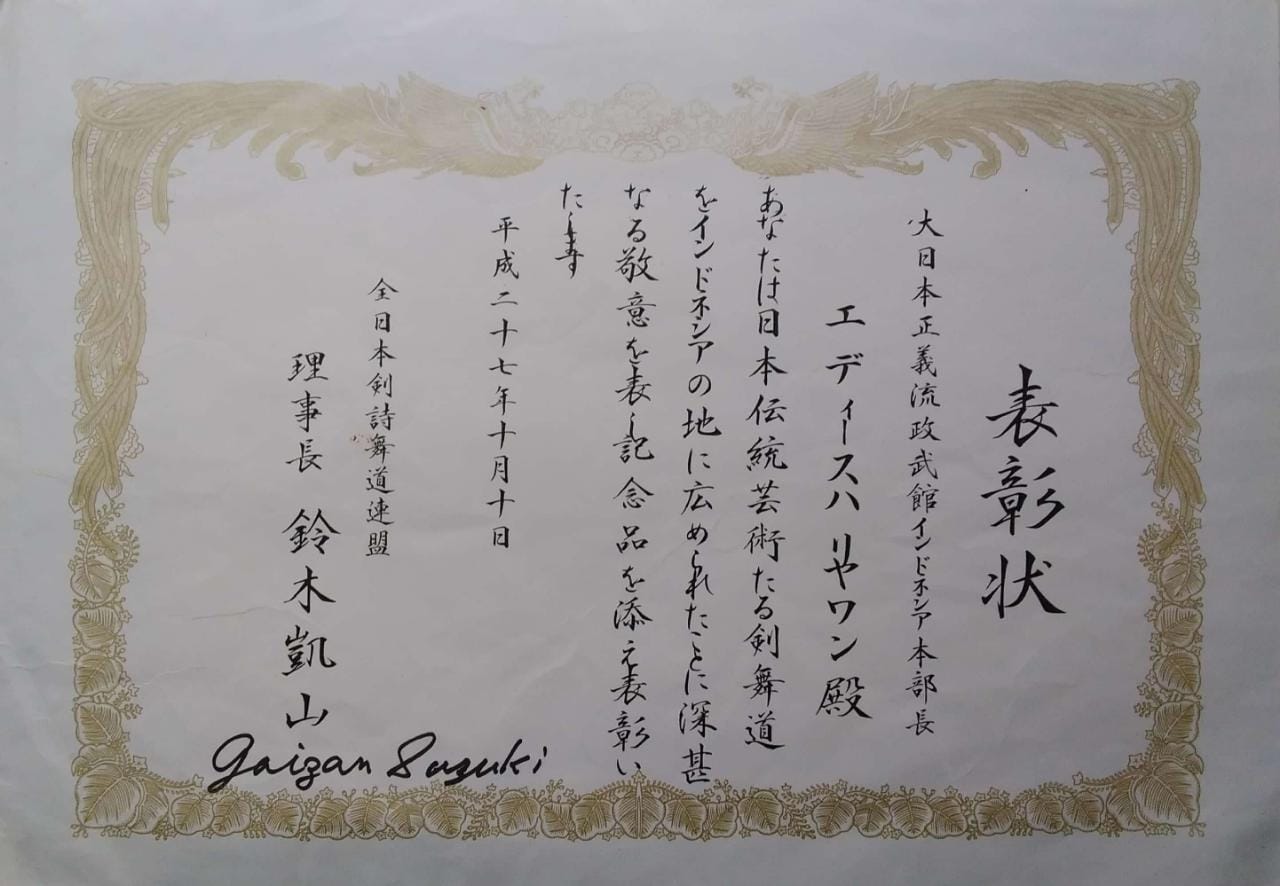 表彰状
大日本正義流政武館インドネシア本部長
エディースハリヤワン殿
あなたは日本伝統芸術たる剣舞道
をインドネシアの地に広められたことに深甚
なる敬意を表し記念品を添え表彰い
たします
平成二十七年十月十日
全日本剣詩舞道連盟
理事長 鈴木凱山
Gaizan Suzuki